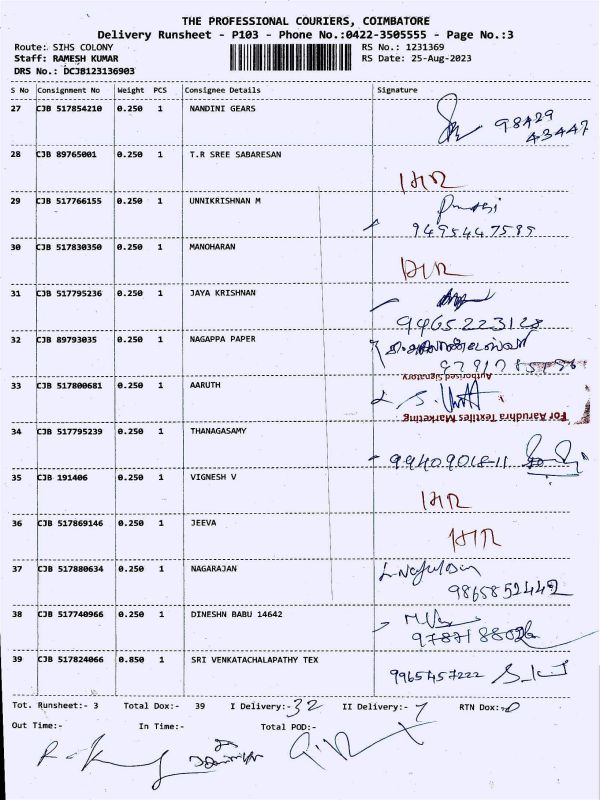 THE PROFESSIONAL COURIERS, COIMBATORE
Delivery Runsheet - P103 - Phone No.:0422-3505555 - Page No.:3
Route: SIHS COLONY RS No.: 1231369
Staff: RAMESH KUMAR RS Date: 25-Aug-2023
DRS No.: DCJB123136903
S No Consignment No Weight PCS Consignee Details Signature
27 CJB 517854210 0.250 1 NANDINI GEARS 98429
43447
28 CJB 89765001 0.250 1 T.R SREE SABARESAN
29 CJB 517766155 0.250 1 UNNIKRISHNAN M
9495447595
30 CJB 517830350 0.250 1 MANOHARAN
31 CJB 517795236 0.250 1 JAYA KRISHNAN
9465223128
32 CJB 89793035 0.250 1 NAGAPPA PAPER
Authorised Signatory
33 CJB 517800681 0.250 1 AARUTH
For Aarudhra Textiles Marketing
34 CJB 517795239 0.250 1 THANAGASAMY
35 CJB 191406 0.250 1 VIGNESH V
36 CJB 517869146 0.250 1 JEEVA
37 CJB 517880634 0.250 1 NAGARAJAN
9865852442
38 CJB 517740966 0.250 1 DINESHN BABU 14642
39 CJB 517824066 0.850 1 SRI VENKATACHALAPATHY TEX 9965457222
Tot. Runsheet:- 3 Total Dox:- 39 I Delivery:- 32 II Delivery:- 7 RTN Dox:- 0
Out Time:- In Time:- Total POD:-